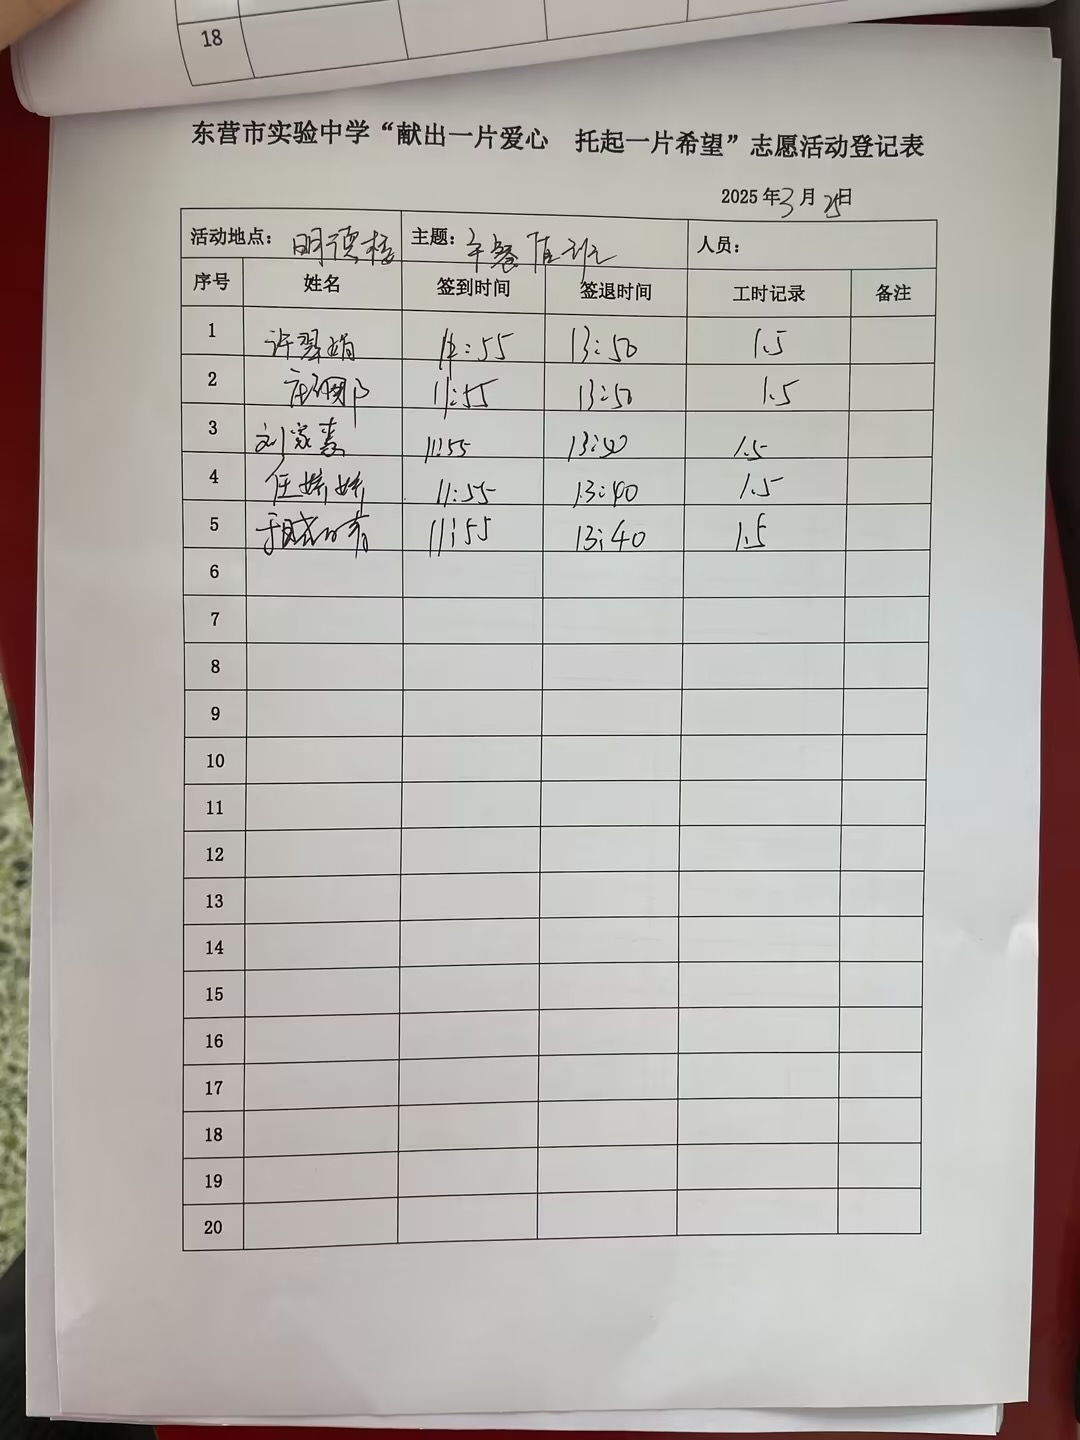 18
东营市实验中学“献出一片爱心 托起一片希望”志愿活动登记表
2025年3月25日
活动地点：明德楼 主题：午餐值班 人员：
序号 姓名 签到时间 签退时间 工时记录 备注
1 许翠娟 11:55 13:50 1.5
2 11:55 13:50 1.5
3 刘家 11:55 13:40 1.5
4 任娇娇 11:55 13:40 1.5
5 11:55 13:40 1.5
6
7
8
9
10
11
12
13
14
15
16
17
18
19
20